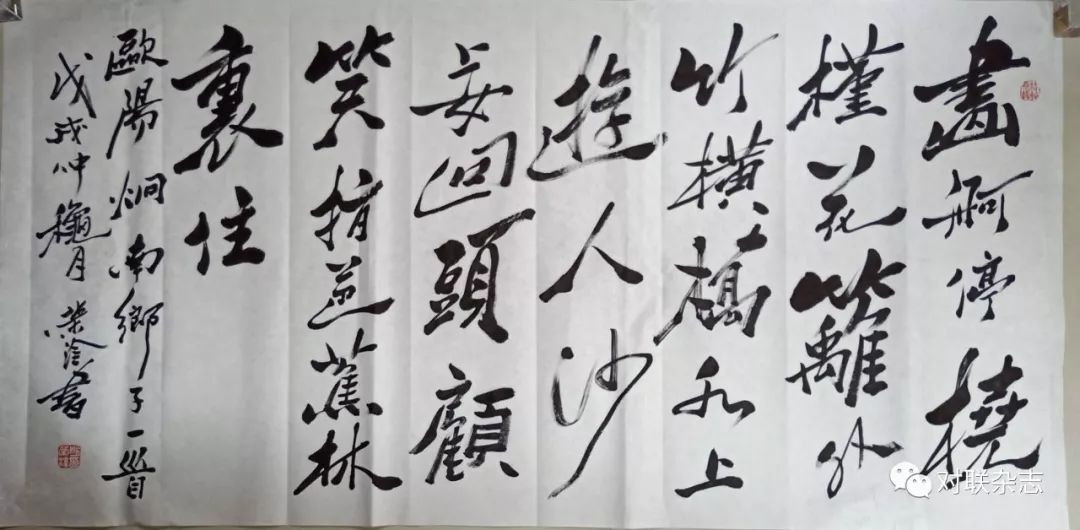 畫舸停橈
槿花籬外
竹橫橋水上
遊人沙
上女迴頭顧
笑指芭蕉林
裏住
歐陽炯南鄉子一首
戊戌仲龝月 榮書
对联杂志